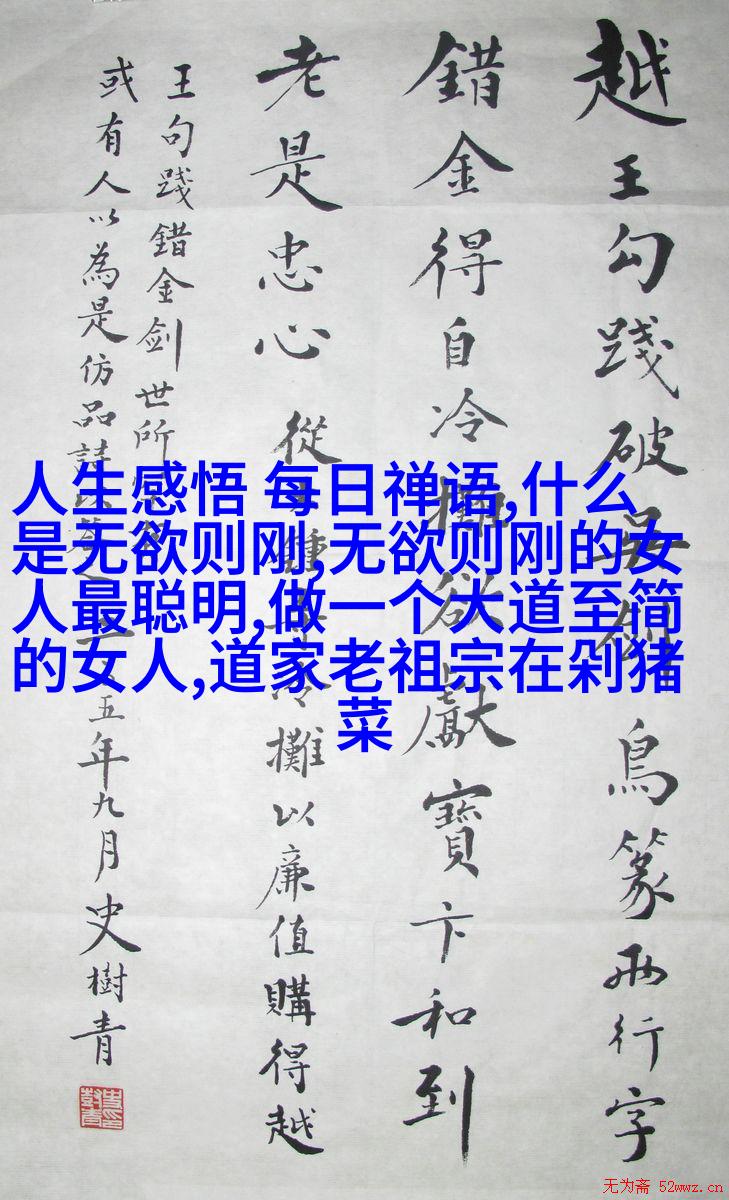 越王勾踐破吳劍鳥篆兩行字
錯金得自冷攤欲獻寶卞和到
老是忠心 從鐘冷攤以廉值購得越
王句踐錯金剑世所
或有人以為是仿品詩以五年九月史樹青
人生感悟 每日禅语,什么
是无欲则刚,无欲则刚的女
人最聪明,做一个大道至简
的女人,道家老祖宗在剁猪
菜
无为斋 52wwz.cn